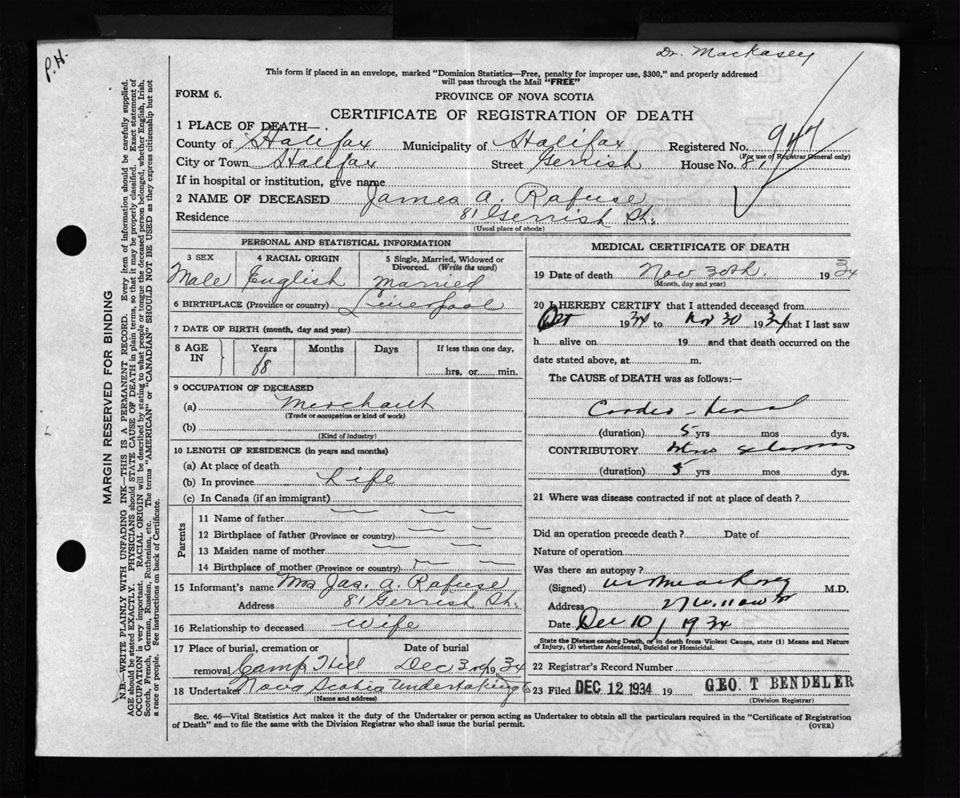 P.H.
Dr. Mackasey
This form if placed in an envelope, marked "Dominion Statistics—Free, penalty for improper use, $300," and properly addressed
will pass through the Mail "FREE"
FORM 6.
PROVINCE OF NOVA SCOTIA
CERTIFICATE OF REGISTRATION OF DEATH
1 PLACE OF DEATH—
County of Halifax Municipality of Halifax Registered No. 947
(For use of Registrar General only)
City or Town Halifax Street Gerrish House No. 81
If in hospital or institution, give name
2 NAME OF DECEASED James A. Rafuse
Residence 81 Gerrish St.
(Usual place of abode)
PERSONAL AND STATISTICAL INFORMATION
3 SEX 4 RACIAL ORIGIN 5 Single, Married, Widowed or
Divorced. (Write the word)
Male English Married
6 BIRTHPLACE (Province or country) Liverpool
7 DATE OF BIRTH (month, day and year)
8 AGE IN Years Months Days If less than one day,
68
hrs, or min.
9 OCCUPATION OF DECEASED
(a) Merchant
(Trade or occupation or kind of work)
(b)
(Kind of industry)
10 LENGTH OF RESIDENCE (in years and months)
(a) At place of death
(b) In province Life
(c) In Canada (if an immigrant)
Parents
11 Name of father
12 Birthplace of father (Province or country)
13 Maiden name of mother
14 Birthplace of mother (Province or country)
15 Informant's name Mrs Jas. A. Rafuse
Address 81 Gerrish St.
16 Relationship to deceased Wife
17 Place of burial, cremation or Date of burial
removal Camp Hill Dec 3rd 1934
18 Undertaker Nova Scotia Undertaking Co
(Name and address)
MEDICAL CERTIFICATE OF DEATH
19 Date of death Nov 30th. 1934
(Month, day and year)
20 I HEREBY CERTIFY that I attended deceased from
Oct 1934 to Nov 30 1934 that I last saw
h alive on 19 and that death occurred on the
date stated above, at m.
The CAUSE of DEATH was as follows:—
Cardio-renal
(duration) 5 yrs mos dys.
CONTRIBUTORY
(duration) 5 yrs mos dys.
21 Where was disease contracted if not at place of death?
Did an operation precede death? Date of
Nature of operation
Was there an autopsy?
(Signed) M.D.
Address 27 Willow St
Date Dec 10/1934
State the Disease causing Death, or in death from Violent Causes, state (1) Means and Nature
of Injury, (2) whether Accidental, Suicidal or Homicidal.
22 Registrar's Record Number
23 Filed DEC 12 1934 19 GEO. T BENDELER
(Division Registrar)
Sec. 46—Vital Statistics Act makes it the duty of the Undertaker or person acting as Undertaker to obtain all the particulars required in the "Certificate of Registration
of Death" and to file the same with the Division Registrar who shall issue the burial permit. (OVER)
MARGIN RESERVED FOR BINDING
N.B.—WRITE PLAINLY WITH UNFADING INK—THIS IS A PERMANENT RECORD. Every item of information should be carefully supplied.
AGE should be stated EXACTLY. PHYSICIANS should STATE CAUSE OF DEATH in plain terms, so that it may be properly classified. Exact statement of
OCCUPATION is very important. RACIAL ORIGIN will be described by stating to what people or tongue the deceased person belonged, whether English, Irish,
Scotch, French, German, Russian, Ruthenian, etc. The terms "AMERICAN" or "CANADIAN" SHOULD NOT BE USED as they express citizenship but not
a race or people. See instructions on back of Certificate.